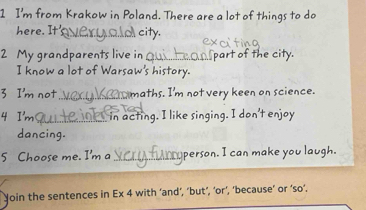 1 I'm from Krakow in Poland. There are a lot of things to do
here. It's a very old city.
exciting
2 My grandparents live in qui part of the city.
I know a lot of Warsaw's history.
3 I'm not very keen maths. I'm not very keen on science.
4 I'm quite intrested in acting. I like singing. I don't enjoy
dancing.
5 Choose me. I'm a very funny person. I can make you laugh.
Join the sentences in Ex 4 with 'and', 'but', 'or', 'because' or 'so'.